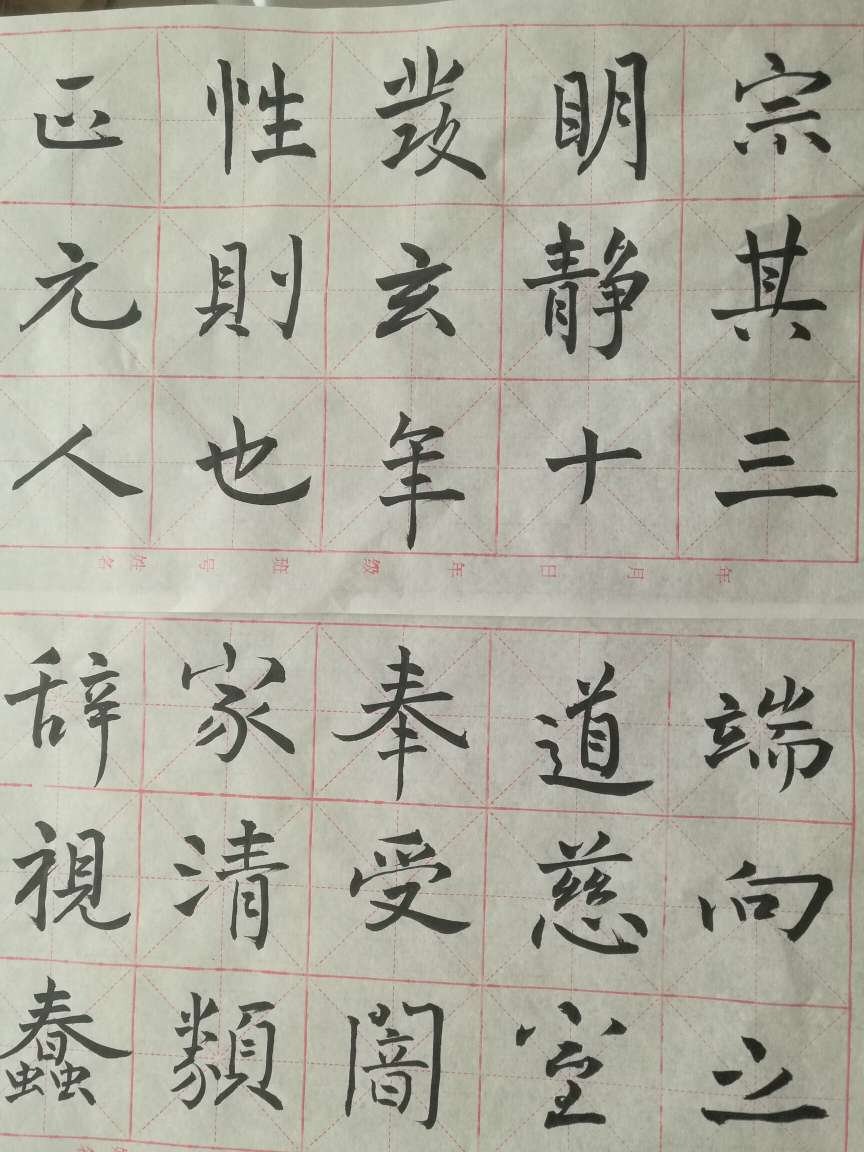 正性發明宗
元則玄静其
人也年十三
年 月 日 年级 班 号 姓名
辞家奉道端
視清受慈向
蠢類闇室之